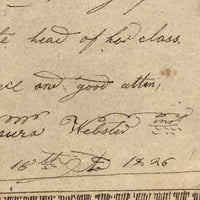 head of her class.
and good atten,
Laura Webster inst
16th 1826